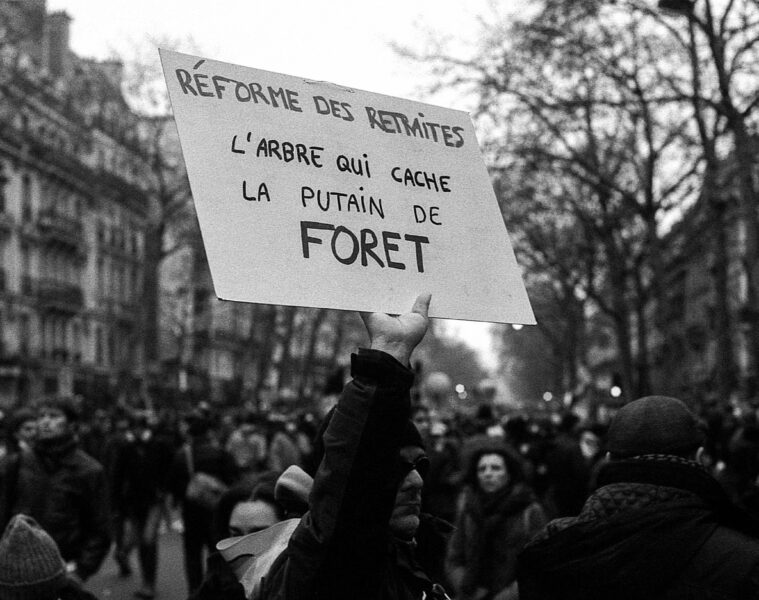 RÉFORME DES RETRAITES
L'ARBRE QUI CACHE
LA PUTAIN DE
FORET